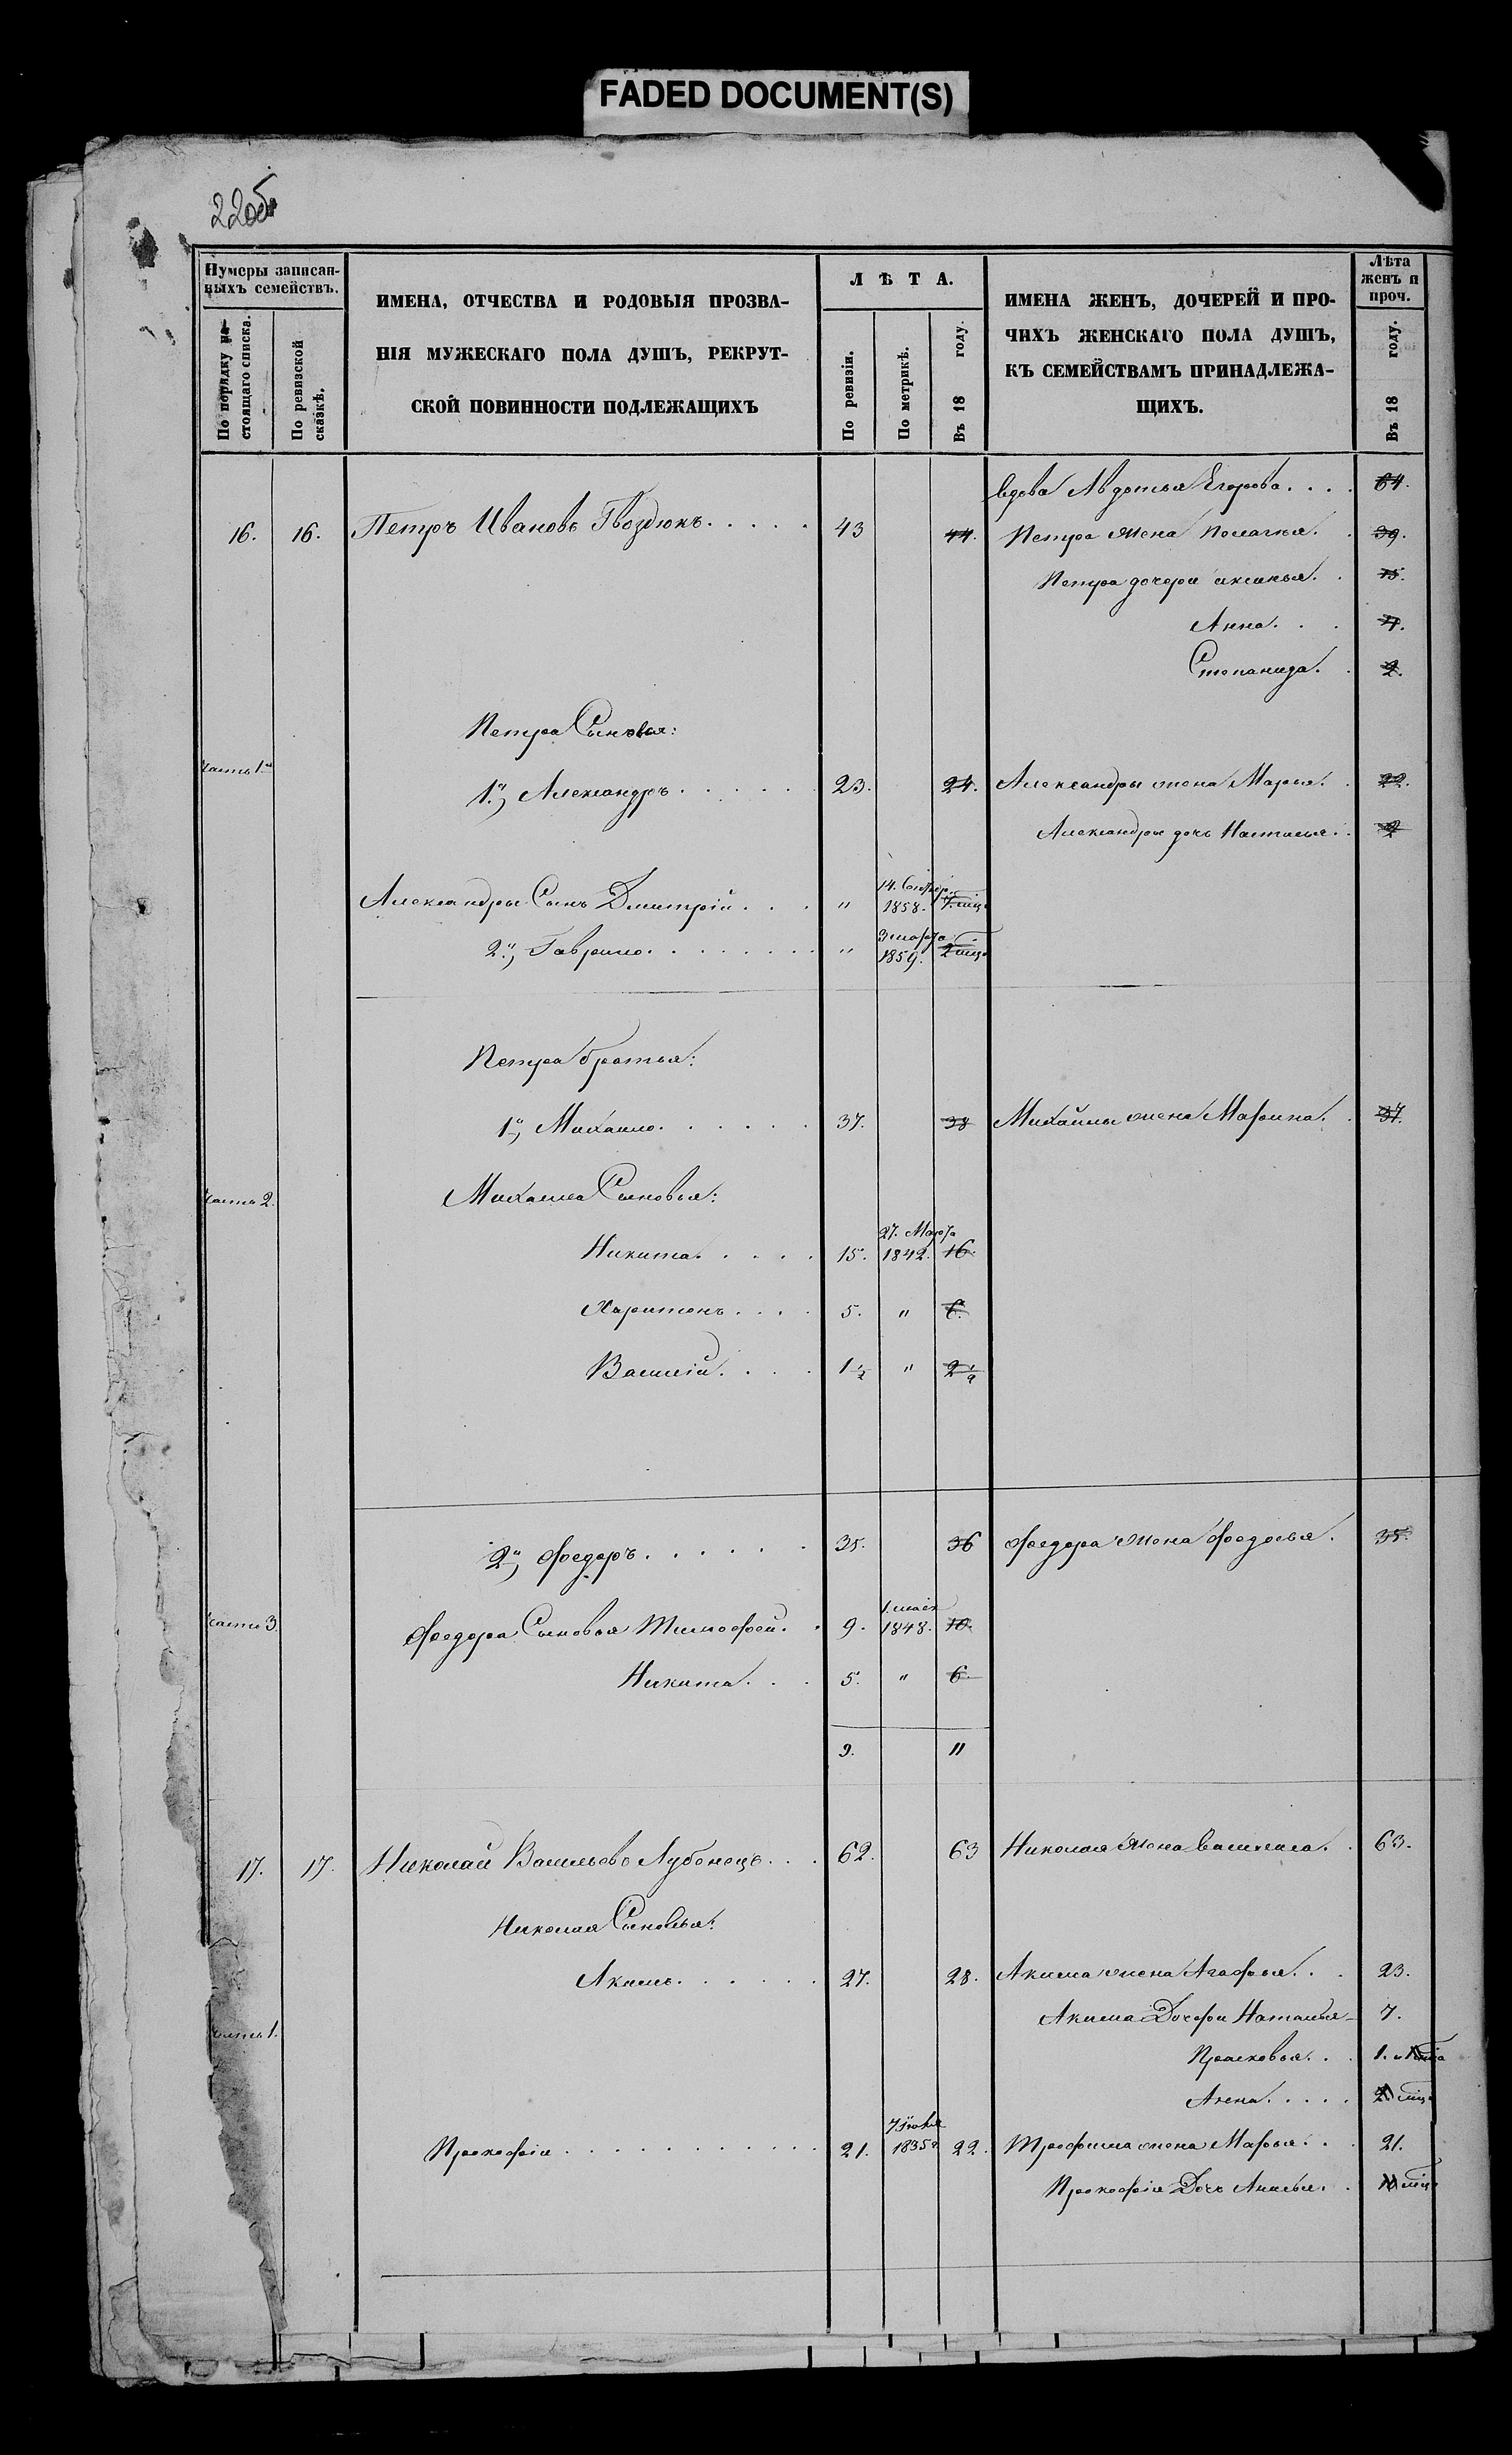 FADED DOCUMENT(S)
22об.
Нумеры записан-
ныхъ семействъ.
По порядку на-
стоящаго списка.
По ревизской
сказкѣ.
ИМЕНА, ОТЧЕСТВА И РОДОВЫЯ ПРОЗВА-
НІЯ МУЖЕСКАГО ПОЛА ДУШЪ, РЕКРУТ-
СКОЙ ПОВИННОСТИ ПОДЛЕЖАЩИХЪ
ЛѢТА.
По ревизіи.
По метрикѣ.
Въ 18 году.
ИМЕНА ЖЕНЪ, ДОЧЕРЕЙ И ПРО-
ЧИХЪ ЖЕНСКАГО ПОЛА ДУШЪ,
КЪ СЕМЕЙСТВАМЪ ПРИНАДЛЕЖА-
ЩИХЪ.
Лѣта
женъ и
проч.
Въ 18 году.
вдова Авдотья Егорова. . . . 64.
16. 16. Петръ Ивановъ Гвоздюкъ. . . . . 43 44. Петра жена Пелагья. . 39.
Петра дочери аксинья. . 15.
Анна. . .
Степанида. . 2.
Петра Сыновья:
часть 1я
1й, Александръ. . . . . . 23. 24. Александры жена Марья. . 22.
Александры дочь Настасья. .
Александры Сынъ Дмитрій. . . . " 14. Октябр. 1858.
2й, Гаврило. . . . . . . . " 3 марта 1859. 2 мѣц.
Петра братья:
1й, Михаило. . . . . . 37. 38 Михайлы жена Марина. . 37.
часть 2.
Михаила Сыновья:
Никита. . . . . 15. 27. Марта 1842. 16.
Харитонъ. . . . 5. " 6.
Василій. . . . 1½ " 2½
2й, Федоръ. . . . . . 35. 36 Федора жена Федосья. 35.
часть 3.
Федора Сыновья Тимофей. . 9. 1. мая 1848. 10.
Никита. . . 5. " 6.
9. 11
17. 17. Николай Васильевъ Лубенецъ. . . 62. 63 Николая жена Василиса. . 63.
Николая Сыновья:
Акимъ. . . . . . 27. 28. Акима жена Агафья. . . 23.
часть 1.
Акима Дочери Наталья 7.
Прасковья. . .
Анна. . . . .
Прокофія . . . . . . . . . . . . 21. 1835 22. Трофима жена Марья. . . 21.
Прокофія Дочь Анисья. .